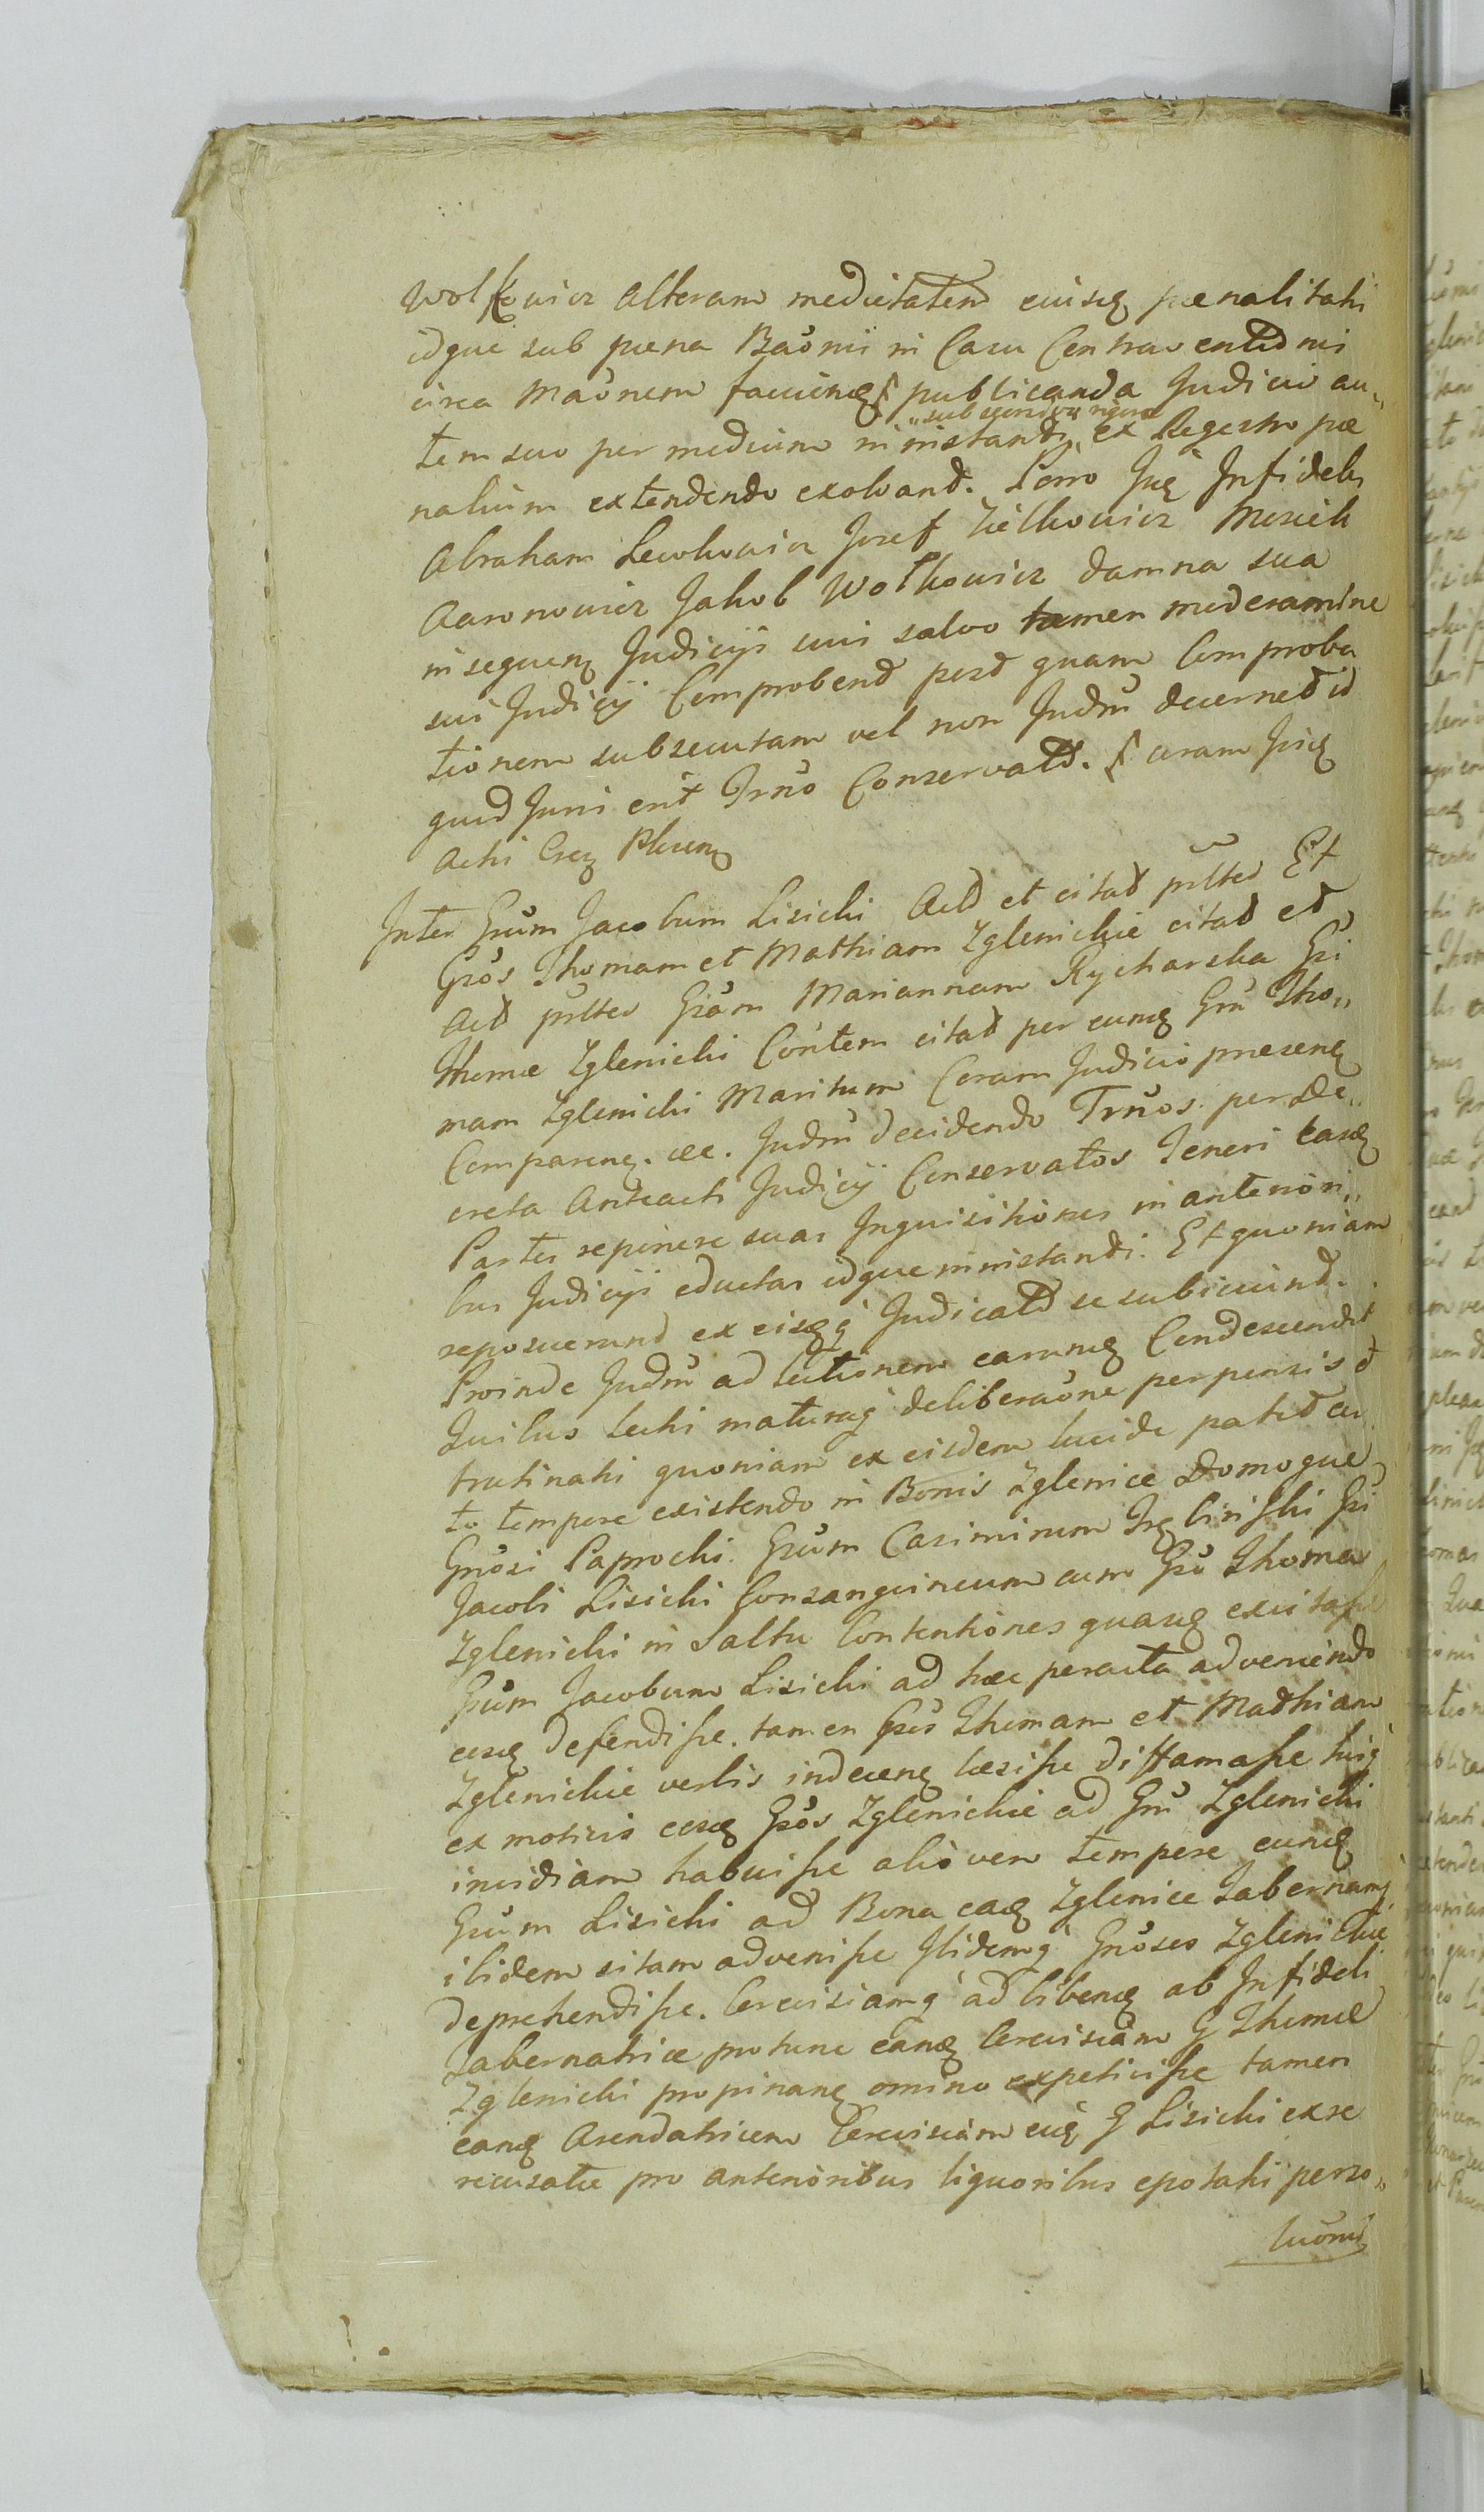 Wolkowicz Alteram medietatem eiusq paenalitatis
idque sub paena Baönii in Casu Contraventionis
circa Maönem faciendq publicanda Judicio au„
tem suo per medium ministando „sub secundum rigore ex Regestro pae
nalium extendendo exolvand. Porro Juq Infideles
Abraham Lewkowicz Josef Zielkowicz Mosiek
Aaronowicz Jakob Wolkowicz damna sua
in sequenq Judicijs suis salvo tamen moderamine
sui Judicij Comprobend post quam Comproba
tionem subsecutam vel non Judm decernet id
quid Juris erit Trno Conservatt. coram Jisq
Acti Czeq Plvenq
Inter Gsum Jacobum Lisicki Act et citat pultes Et
Gsos Thomam et Mathiam Zglenickie citat et
Act pultes Gsam Mariannam Rycharska Gsi
Thomae Zglenicki Contem citat per eunq Gsu Tho„
mam Zglenicki Maritum Coram Judicio praesenq
Comparenq. etc. Judm decidendo Trnos per De„
creta Anteacti Judicij Conservatos Teneri easq
Partes reponere suas Inquisitiones in anteriori„
bus Judicijs eductas idque ministandi. Et quoniam
reposuerund ex eisqq Judicatt se subiiciund.
Proinde Judm ad lectionem earunq Condescendit
Quibus lectis maturaq deliberaöne perpensis et
trutinatis quoniam ex eisdem lucide patet cer
to tempore existendo in Bonis Zglenice Domoque
Gnosi Paprocki. Gsum Casimirum Trębiński Gsi
Jacobi Lisicki Consanguineum cum Gso Thoma
Zglenicki in Saltu Contentiones quasq excitasse
Gsum Jacobum Lisicki ad haec peracta adveniendo
eosq defendisse. tamen Gsos Thomam et Mathiam
Zglenickie verbis indecenq laesisse diffamasse huiq
ex motivis eosq Gsos Zglenickie ad Gsu Zglenicki
invidiam habuisse alio vero tempore eunq
Gsum Lisicki ad Bona eaq Zglenice Tabernamq
ibidem sitam advenisse Ibidemq Gnosos Zglenickie
deprehendisse. Cerevisiamq ad bibenq ab Infideli
Tabernatrice pro tunc eanq Cerevisiam G Thomae
Zglenicki propinanq omino expetivisse tamen
eanq Arendatricem Cerevisiam eiq G Lisicki ex se
recusatae pro anterioribus liquoribus epotatis perso„
luönis